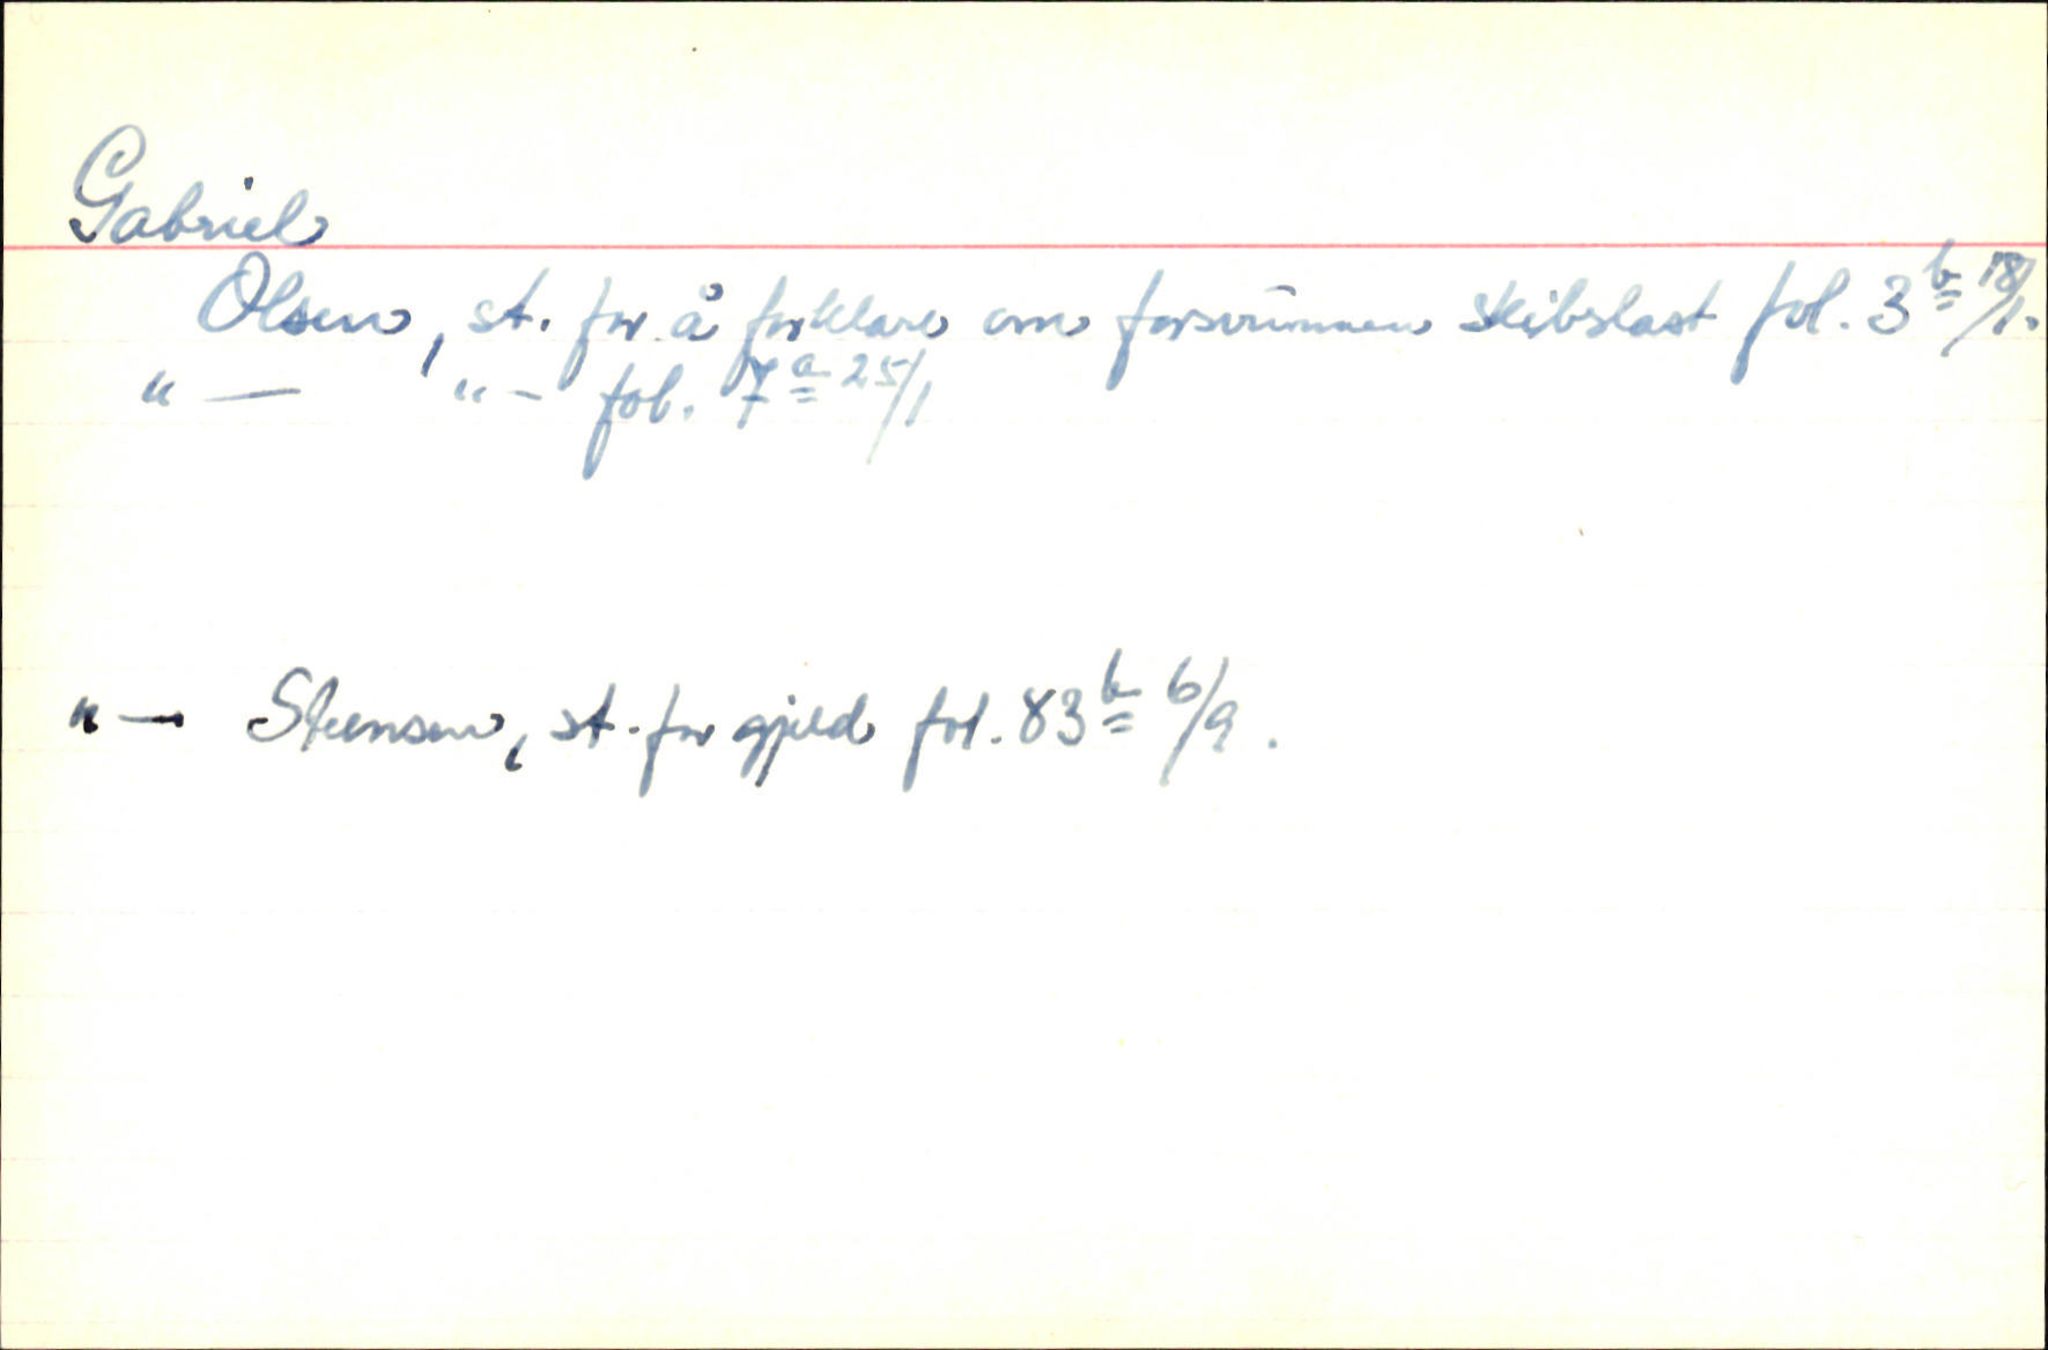 Gabriel
Olsen, st. for å forklare om forsvunnen skibslast fol. 3 b 18/1.
" — " - fol. 7 a 25/1
" — Steensen, st. for gjeld fol. 83 b 6/9.